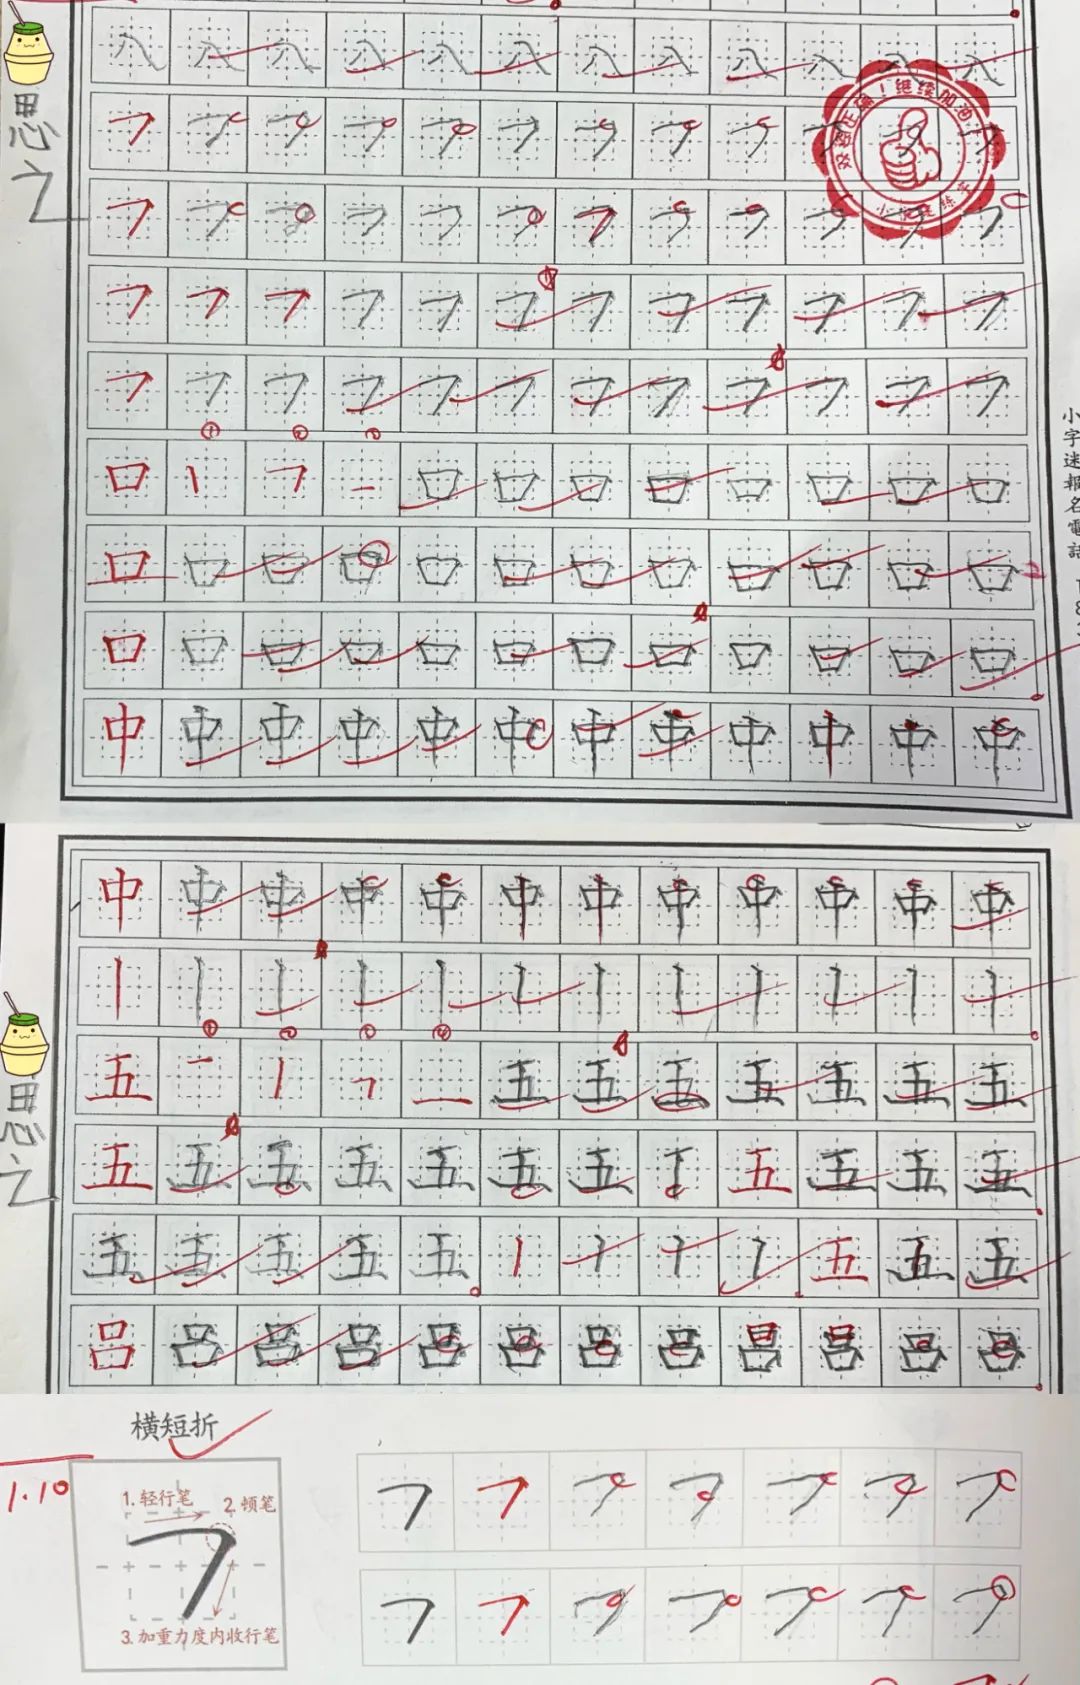 思之
八 八 八 八 八 八 八 八 八 八 八 八
双姿正确！继续加油
口 口 口 口 口 口 口 口 口
口 口 口 口 口 口 口 口 口 口 口 口
口 口 口 口 口 口 口 口 口 口 口 口
中 中 中 中 中 中 中 中 中 中 中 中
小字迷報名電話 18
思之
中 中 中 中 中 中 中 中 中 中 中 中
① ② ③ ④
五 五 五 五 五 五 五 五
五 五 五 五 五 五 五 五 五 五 五
五 五 五 五 五 五 五 五
吕 吕 吕 吕 吕 吕 吕 吕 吕 吕 吕 吕
横短折
1.10
1.轻行笔
2.顿笔
3.加重力度内收行笔